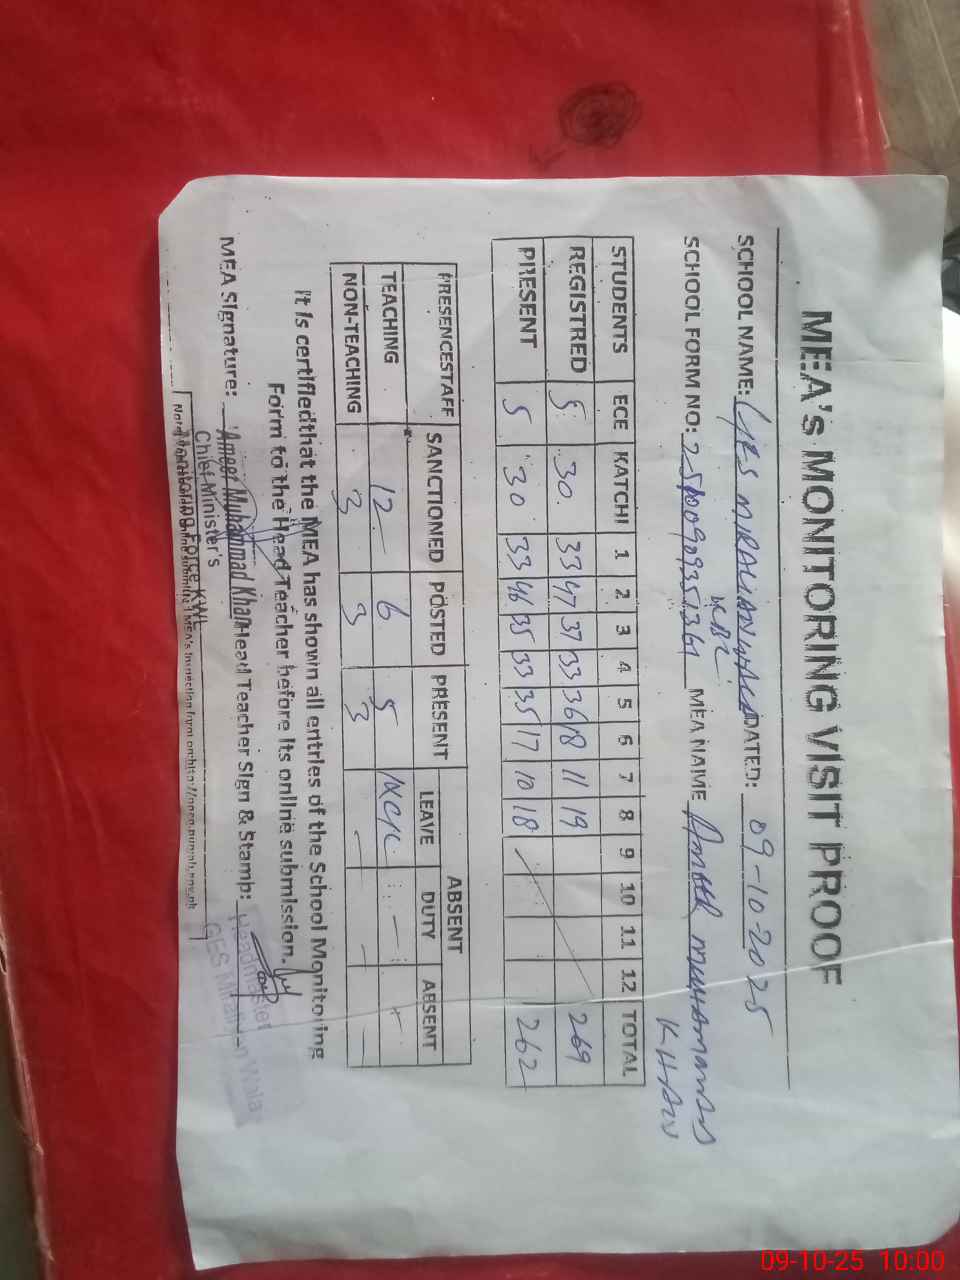 MEA's MONITORING VISIT PROOF
SCHOOL NAME: GES MIRALIANWALA DATED: 09-10-2025
SCHOOL FORM NO: MEA NAME AMEER MUHAMMAD KHAN
STUDENTS ECE KATCHI 1 2 3 4 5 6 7 8 9 10 11 12 TOTAL
REGISTRED 5 30 33 47 37 33 36 18 11 19 269
PRESENT 5 30 33 46 35 33 35 17 10 18 262
PRESENCESTAFF SANCTIONED POSTED PRESENT ABSENT
LEAVE DUTY ABSENT
TEACHING 12 6 5 - -
NON-TEACHING 3 3 3 - - -
It is certifiedthat the MEA has shown all entries of the School Monitoring
Form to the Head Teacher before its online submission.
MEA Signature: Ameer Muhammad Khan Head Teacher Sign & Stamp:
Chief Minister's
Monitoring Force KWL
Headmaster
GES Wala
09-10-25 10:00